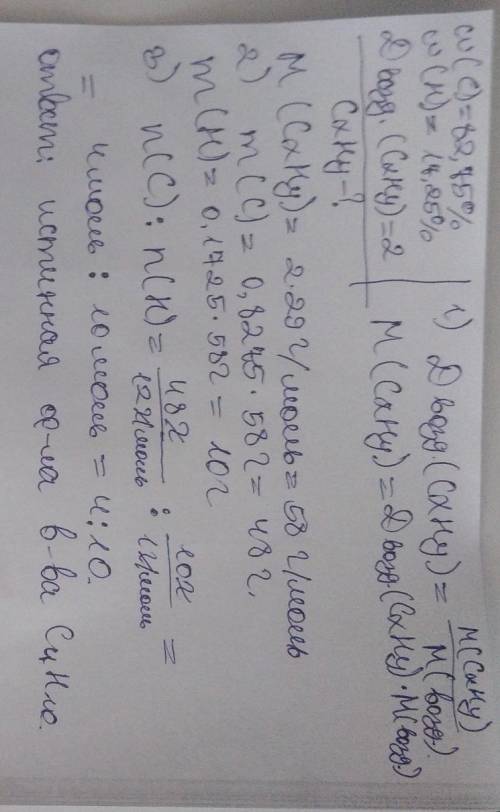 w(C)=82,75%
w(H)=17,25%
Dвозд.(CxHy)=2
CxHy-?
1) Dвозд.(CxHy)= M(CxHy) / M(возд.)
M(CxHy)=Dвозд.(CxHy)·M(возд.)
M(CxHy)= 2·29г/моль=58г/моль
2) m(C)= 0,8275·58г=48г.
m(H)=0,1725·58г= 10г
3) n(C):n(H)= 48г / 12г/моль : 10г / 1г/моль =
= 4моль: 10моль=4:10.
ответ: истинная ф-ла в-ва C4H10.